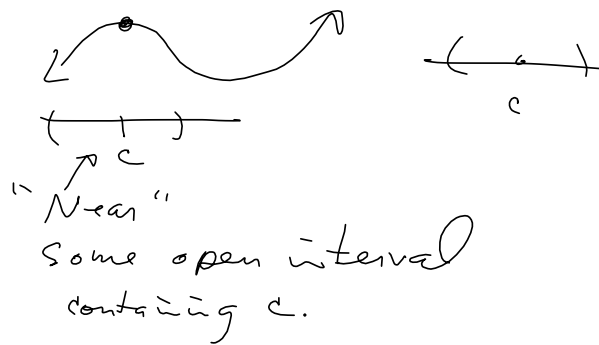 c
c
"Near"
some open interval
containing c.